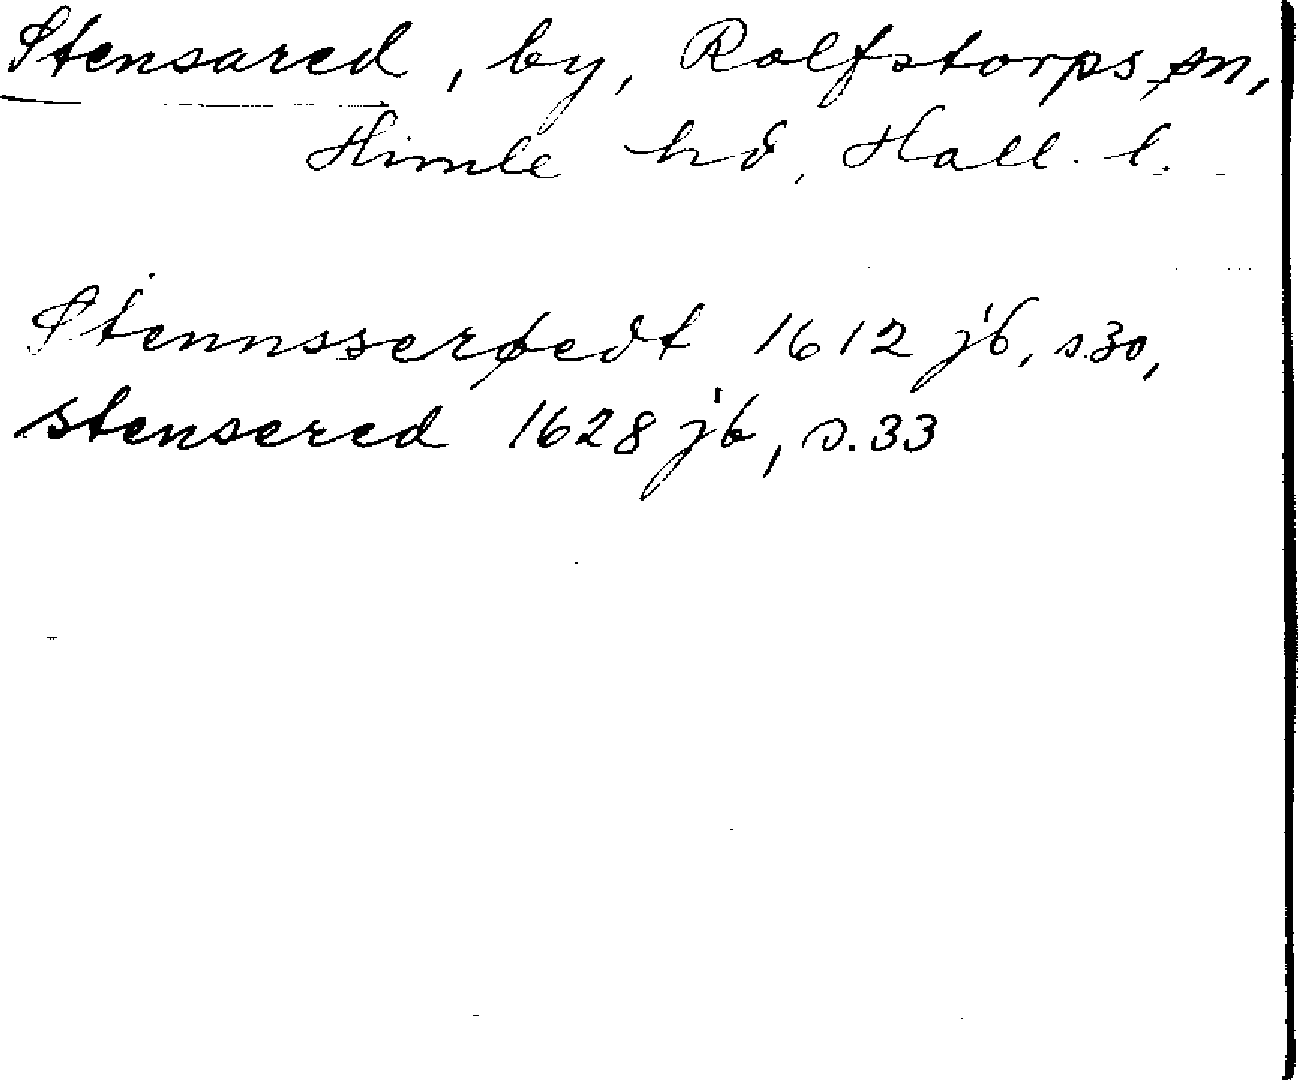 Stensared, by, Rolfstorps sn,
Himle hd, Hall. l.
Stennsserødt 1612 jb, s.30,
stensered 1628 jb, s.33